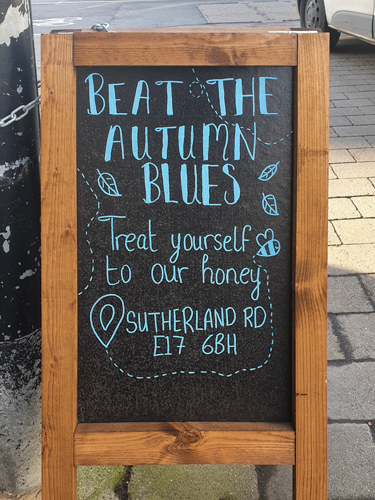 BEAT THE
AUTUMN
BLUES
Treat yourself
to our honey
SUTHERLAND RD
E17 6BH